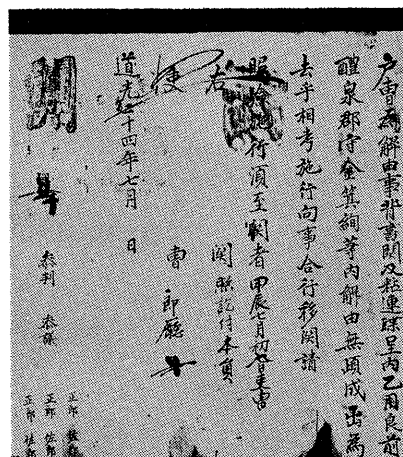 戶曹爲解由事背書關及粘連牒呈內乙用良前
醴泉郡守金箕絢等內解由無頉成出爲
去乎相考施行向事合行移關請
照驗施行須至關者 甲辰七月初
右 關 照訖付本員
曹 郎廳
道光二十四年七月 日
參判 參議
正郎 佐郎
正郎 佐郎
正郎 佐郎